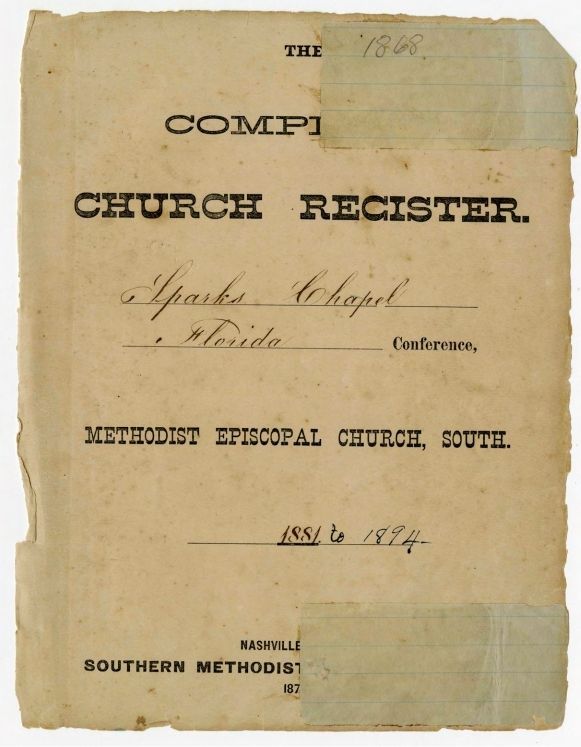 THE
1868
COMPL
CHURCH REGISTER.
Sparks Chapel
Florida Conference,
METHODIST EPISCOPAL CHURCH, SOUTH.
1881 to 1894
NASHVILLE
SOUTHERN METHODIST
187